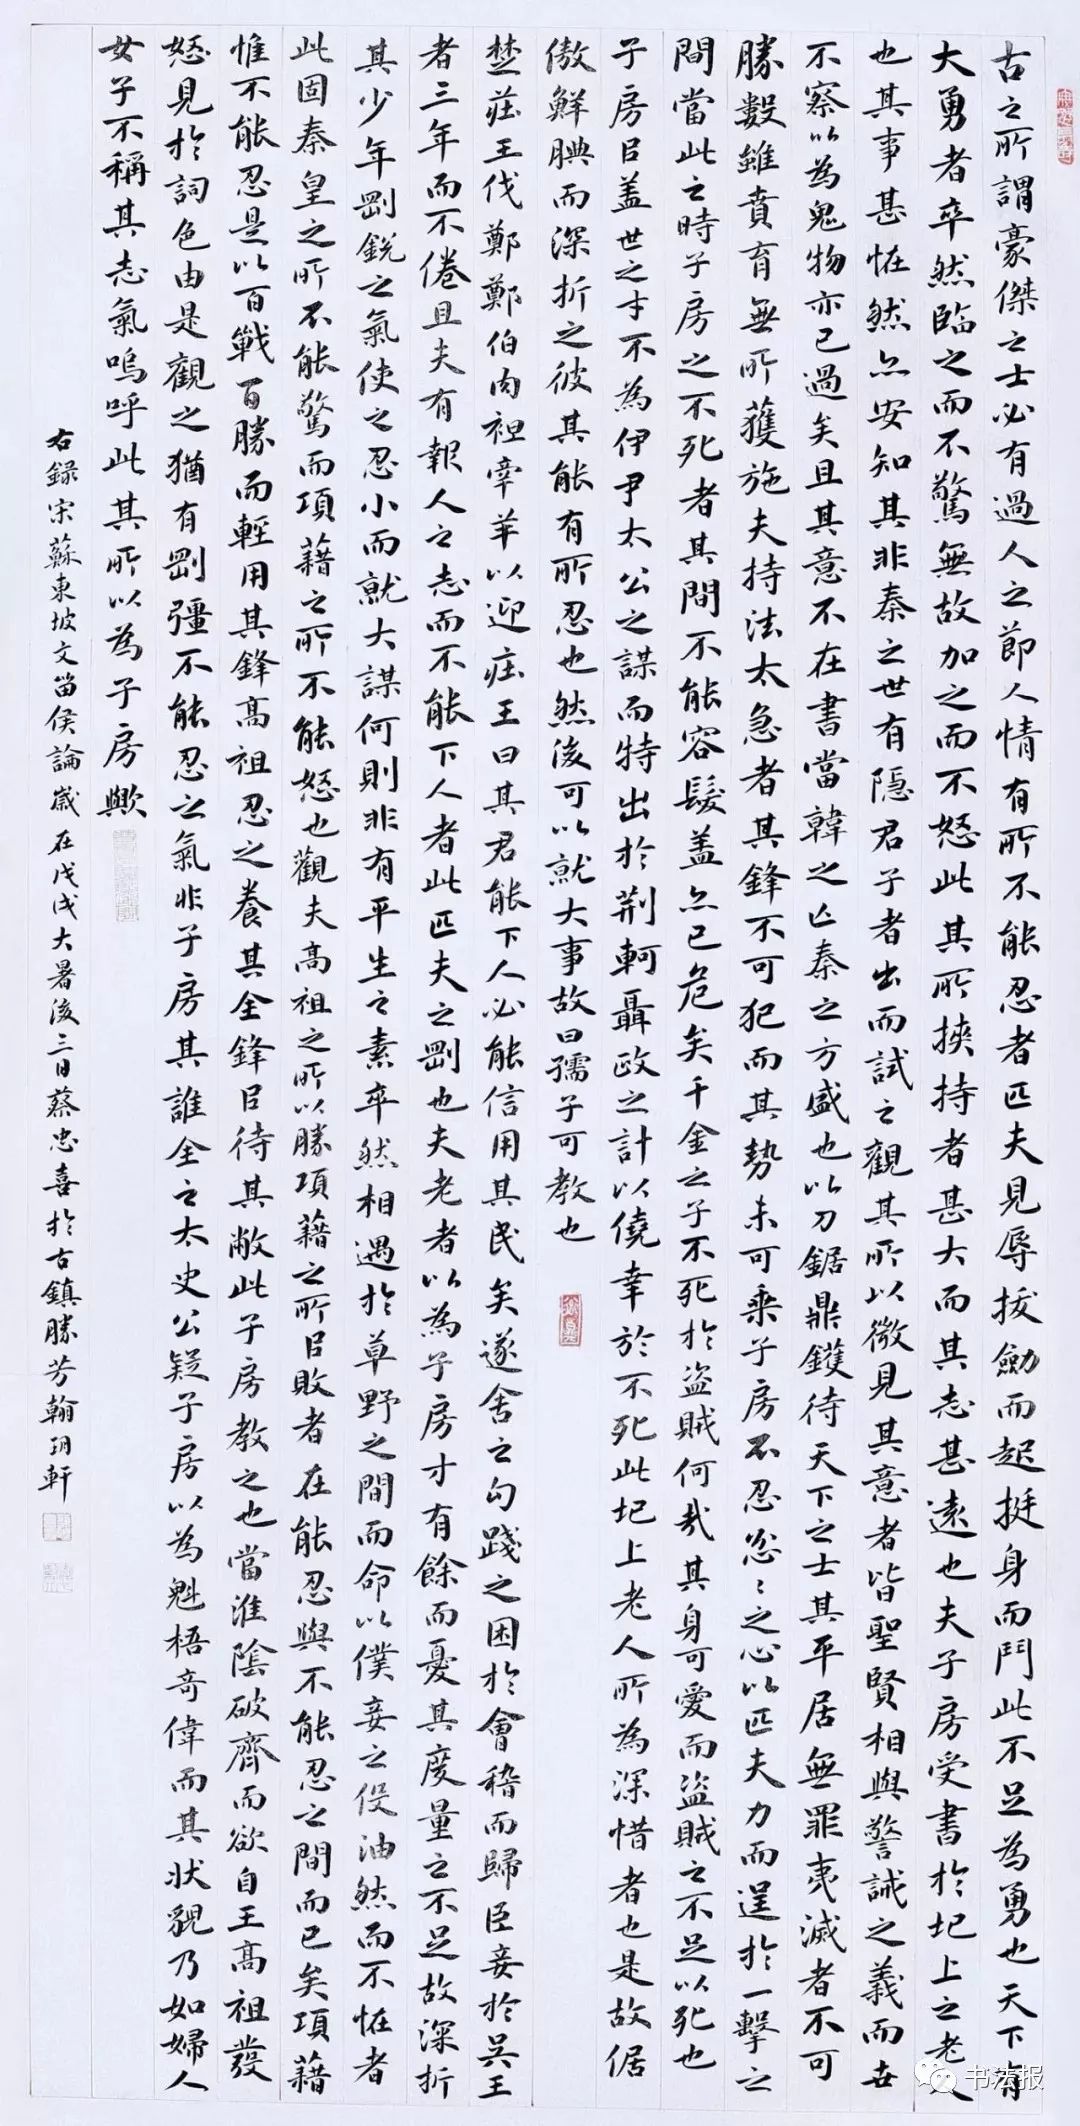 古之所謂豪傑之士必有過人之節人情有所不能忍者匹夫見辱拔劍而起挺身而鬥此不足為勇也天下有
大勇者卒然臨之而不驚無故加之而不怒此其所挾持者甚大而其志甚遠也夫子房受書於圯上之老人
也其事甚怪然亦安知其非秦之世有隱君子者出而試之觀其所以微見其意者皆聖賢相與警誡之義而世
不察以為鬼物亦已過矣且其意不在書當韓之亡秦之方盛也以刀鋸鼎鑊待天下之士其平居無罪夷滅者不可
勝數雖賁育無所獲施夫持法太急者其鋒不可犯而其勢未可乘子房不忍忿忿之心以匹夫力而逞於一擊之
間當此之時子房之不死者其間不能容髮蓋亦已危矣千金之子不死於盜賊何哉其身可愛而盜賊之不足以死也
子房㠯蓋世之才不為伊尹太公之謀而特出於荊軻聶政之計以僥幸於不死此圯上老人所為深惜者也是故倨
傲鮮腆而深折之彼其能有所忍也然後可以就大事故曰孺子可教也
楚莊王伐鄭鄭伯肉袒牽羊以迎莊王曰其君能下人必能信用其民矣遂舍之勾踐之困於會稽而歸臣妾於吳王
者三年而不倦且夫有報人之志而不能下人者此匹夫之剛也夫老者以為子房才有餘而憂其度量之不足故深折
其少年剛銳之氣使之忍小而就大謀何則非有平生之素卒然相遇於草野之間而命以僕妾之役油然而不怪者
此固秦皇之所不能驚而項藉之所不能怒也觀夫高祖之所以勝項藉之所㠯敗者在能忍與不能忍之間而已矣項藉
惟不能忍是以百戰百勝而輕用其鋒高祖忍之養其全鋒㠯待其敝此子房教之也當淮陰破齊而欲自王高祖發
怒見於詞色由是觀之猶有剛彊不能忍之氣非子房其誰全之太史公疑子房以為魁梧奇偉而其狀貌乃如婦人
女子不稱其志氣嗚呼此其所以為子房歟
右錄宋蘇東坡文留侯論歲在戊戌大暑後三日蔡忠喜於古鎮勝芳翰玥軒
书法报